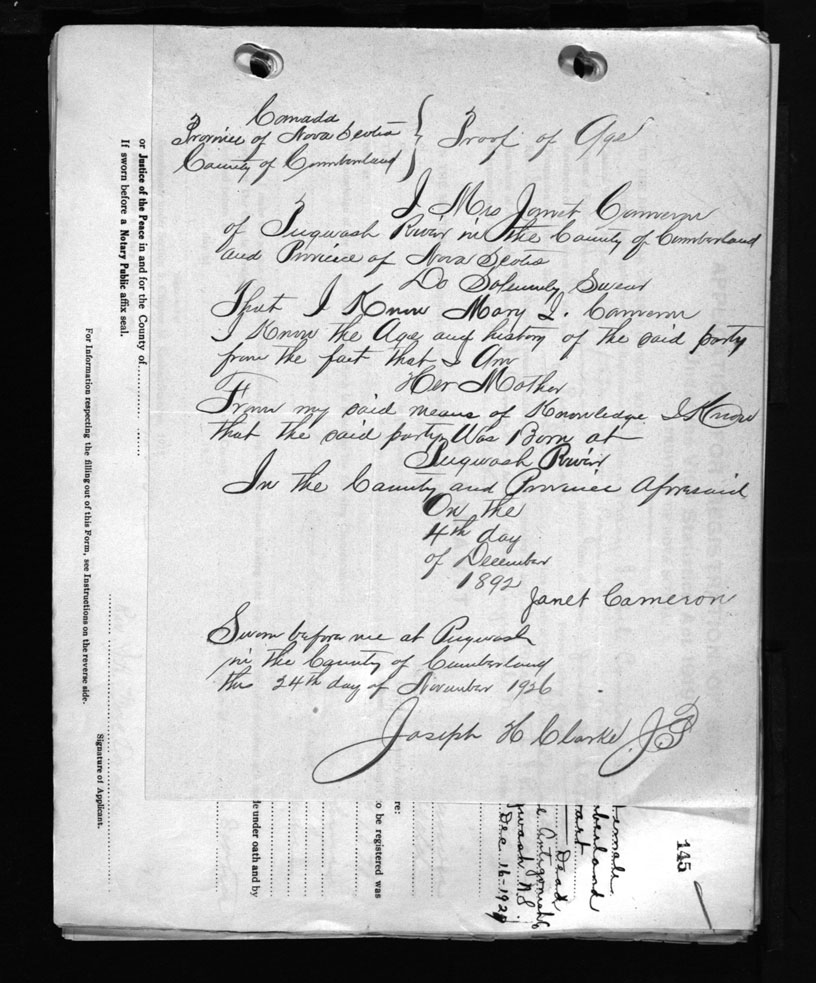 Canada
Province of Nova Scotia
County of Cumberland
Proof of Age
I Mrs Janet Cameron
of Pugwash River in the County of Cumberland
and Province of Nova Scotia
Do Solemnly Swear
That I Know Mary J. Cameron
I Know the Age and history of the said party
from the fact that I Am
Her Mother
From my said means of Knowledge I Know
that the said party Was Born at
Pugwash River
In the County and Province Aforesaid
On the
4th day
of December
1892
Janet Cameron
Sworn before me at Pugwash
in the County of Cumberland
this 24th day of November 1926
Joseph H Clarke JP
or Justice of the Peace in and for the County of
If sworn before a Notary Public affix seal.
For Information respecting the filling out of this Form, see Instructions on the reverse side.
Signature of Applicant.
de under oath and by
o be registered was
re:
145
emale
berland
art
Dead
Antigonish
gwash N.S.
Dec 16-192